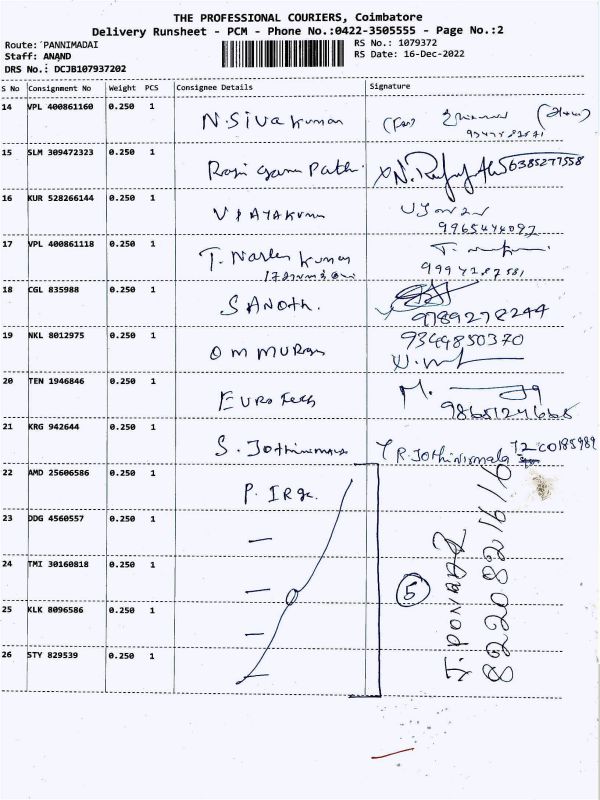 THE PROFESSIONAL COURIERS, Coimbatore
Delivery Runsheet - PCM - Phone No.:0422-3505555 - Page No.:2
Route: PANNIMADAI
RS No.: 1079372
Staff: ANAND
RS Date: 16-Dec-2022
DRS No.: DCJB107937202
S No Consignment No Weight PCS Consignee Details Signature
14 VPL 400861160 0.250 1 N. Siva kumar
15 SLM 309472323 0.250 1 6385277558
16 KUR 528266144 0.250 1 VIJAYAKumar
17 VPL 400861118 0.250 1 T. Kumar
18 CGL 835988 0.250 1 9789278244
19 NKL 8012975 0.250 1 OM MURugan 9344850370
20 TEN 1946846 0.250 1 EURO Tech M.
21 KRG 942644 0.250 1 S. Jothinirmala R. Jothinirmala
22 AMD 25606586 0.250 1 P.
23 DDG 4560557 0.250 1 —
24 TMI 30160818 0.250 1 —
25 KLK 8096586 0.250 1 —
26 STY 829539 0.250 1 —
5
8220821616